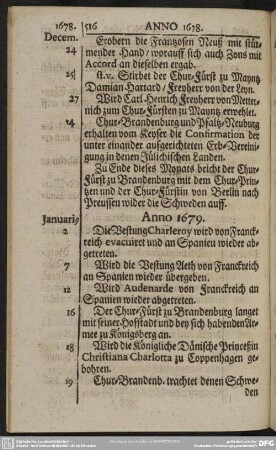 1678. 516 ANNO 1678.
Decem. Erobern die Franzosen Neuß mit stür-
24 mender Hand / worauff sich auch Zons mit
Accord an dieselben ergab.
25 st.v. Stirbet der Chur-Fürst zu Mayntz
Damian Hartard / Freyherr von der Leyn.
27 Wird Carl Henrich Freyherr von Metter-
nich zum Chur-Fürsten zu Mayntz erwehlet.
14 Chur-Brandenburg und Pfaltz-Neuburg
erhalten vom Keyser die Confirmation der
unter einander auffgerichteten Erb-Verei-
nigung in denen Jülichischen Landen.
Zu Ende dieses Monats bricht der Chur-
Fürst zu Brandenburg mit dem Chur-Prin-
tzen und der Chur-Fürstin von Berlin nach
Preussen wider die Schweden auff.
Anno 1679.
Januari9
2 Die Vestung Charleroy wird von Franck-
reich evacuiret und an Spanien wieder ab-
getreten.
7 Wird die Vestung Aeth von Franckreich
an Spanien wieder übergeben.
12 Wird Audenarde von Franckreich an
Spanien wieder abgetreten.
16 Der Chur-Fürst zu Brandenburg langet
mit seiner Hofstadt und bey sich habenden Ar-
mee zu Königsberg an.
18 Wird die Königliche Dänische Princeßin
Christiana Charlotta zu Coppenhagen ge-
bohren.
19 Chur-Brandenb. trachtet denen Schwe-
den